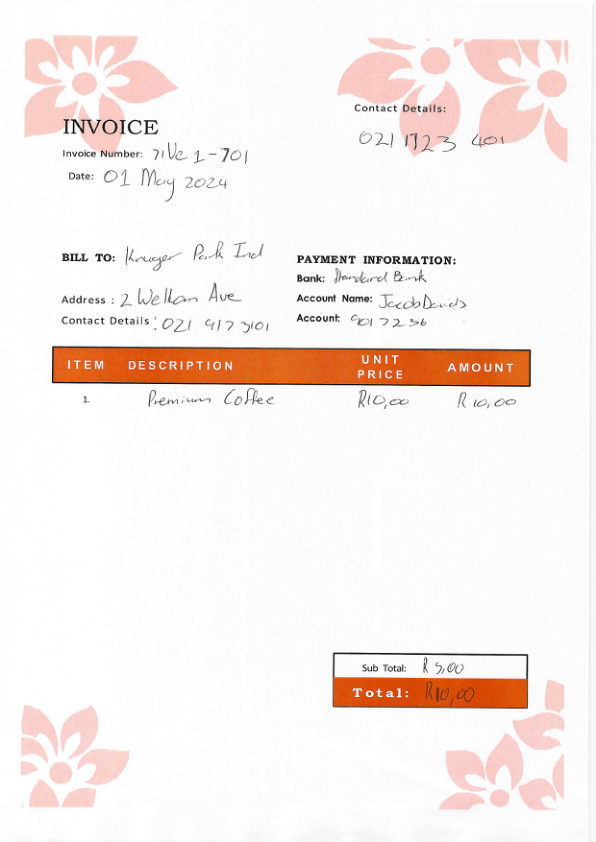 Contact Details:
021 1723 401
INVOICE
Invoice Number: 71Ve 1-701
Date: 01 May 2024
BILL TO: Kruger Park Ind
Address : 2 Welkom Ave
Contact Details : 021 917 3101
PAYMENT INFORMATION:
Bank: Standard Bank
Account Name: Jacob Davids
Account: 9017236
ITEM DESCRIPTION UNIT PRICE AMOUNT
1. Premium Coffee R10,00 R 10,00
Sub Total: R 5,00
Total: R10,00